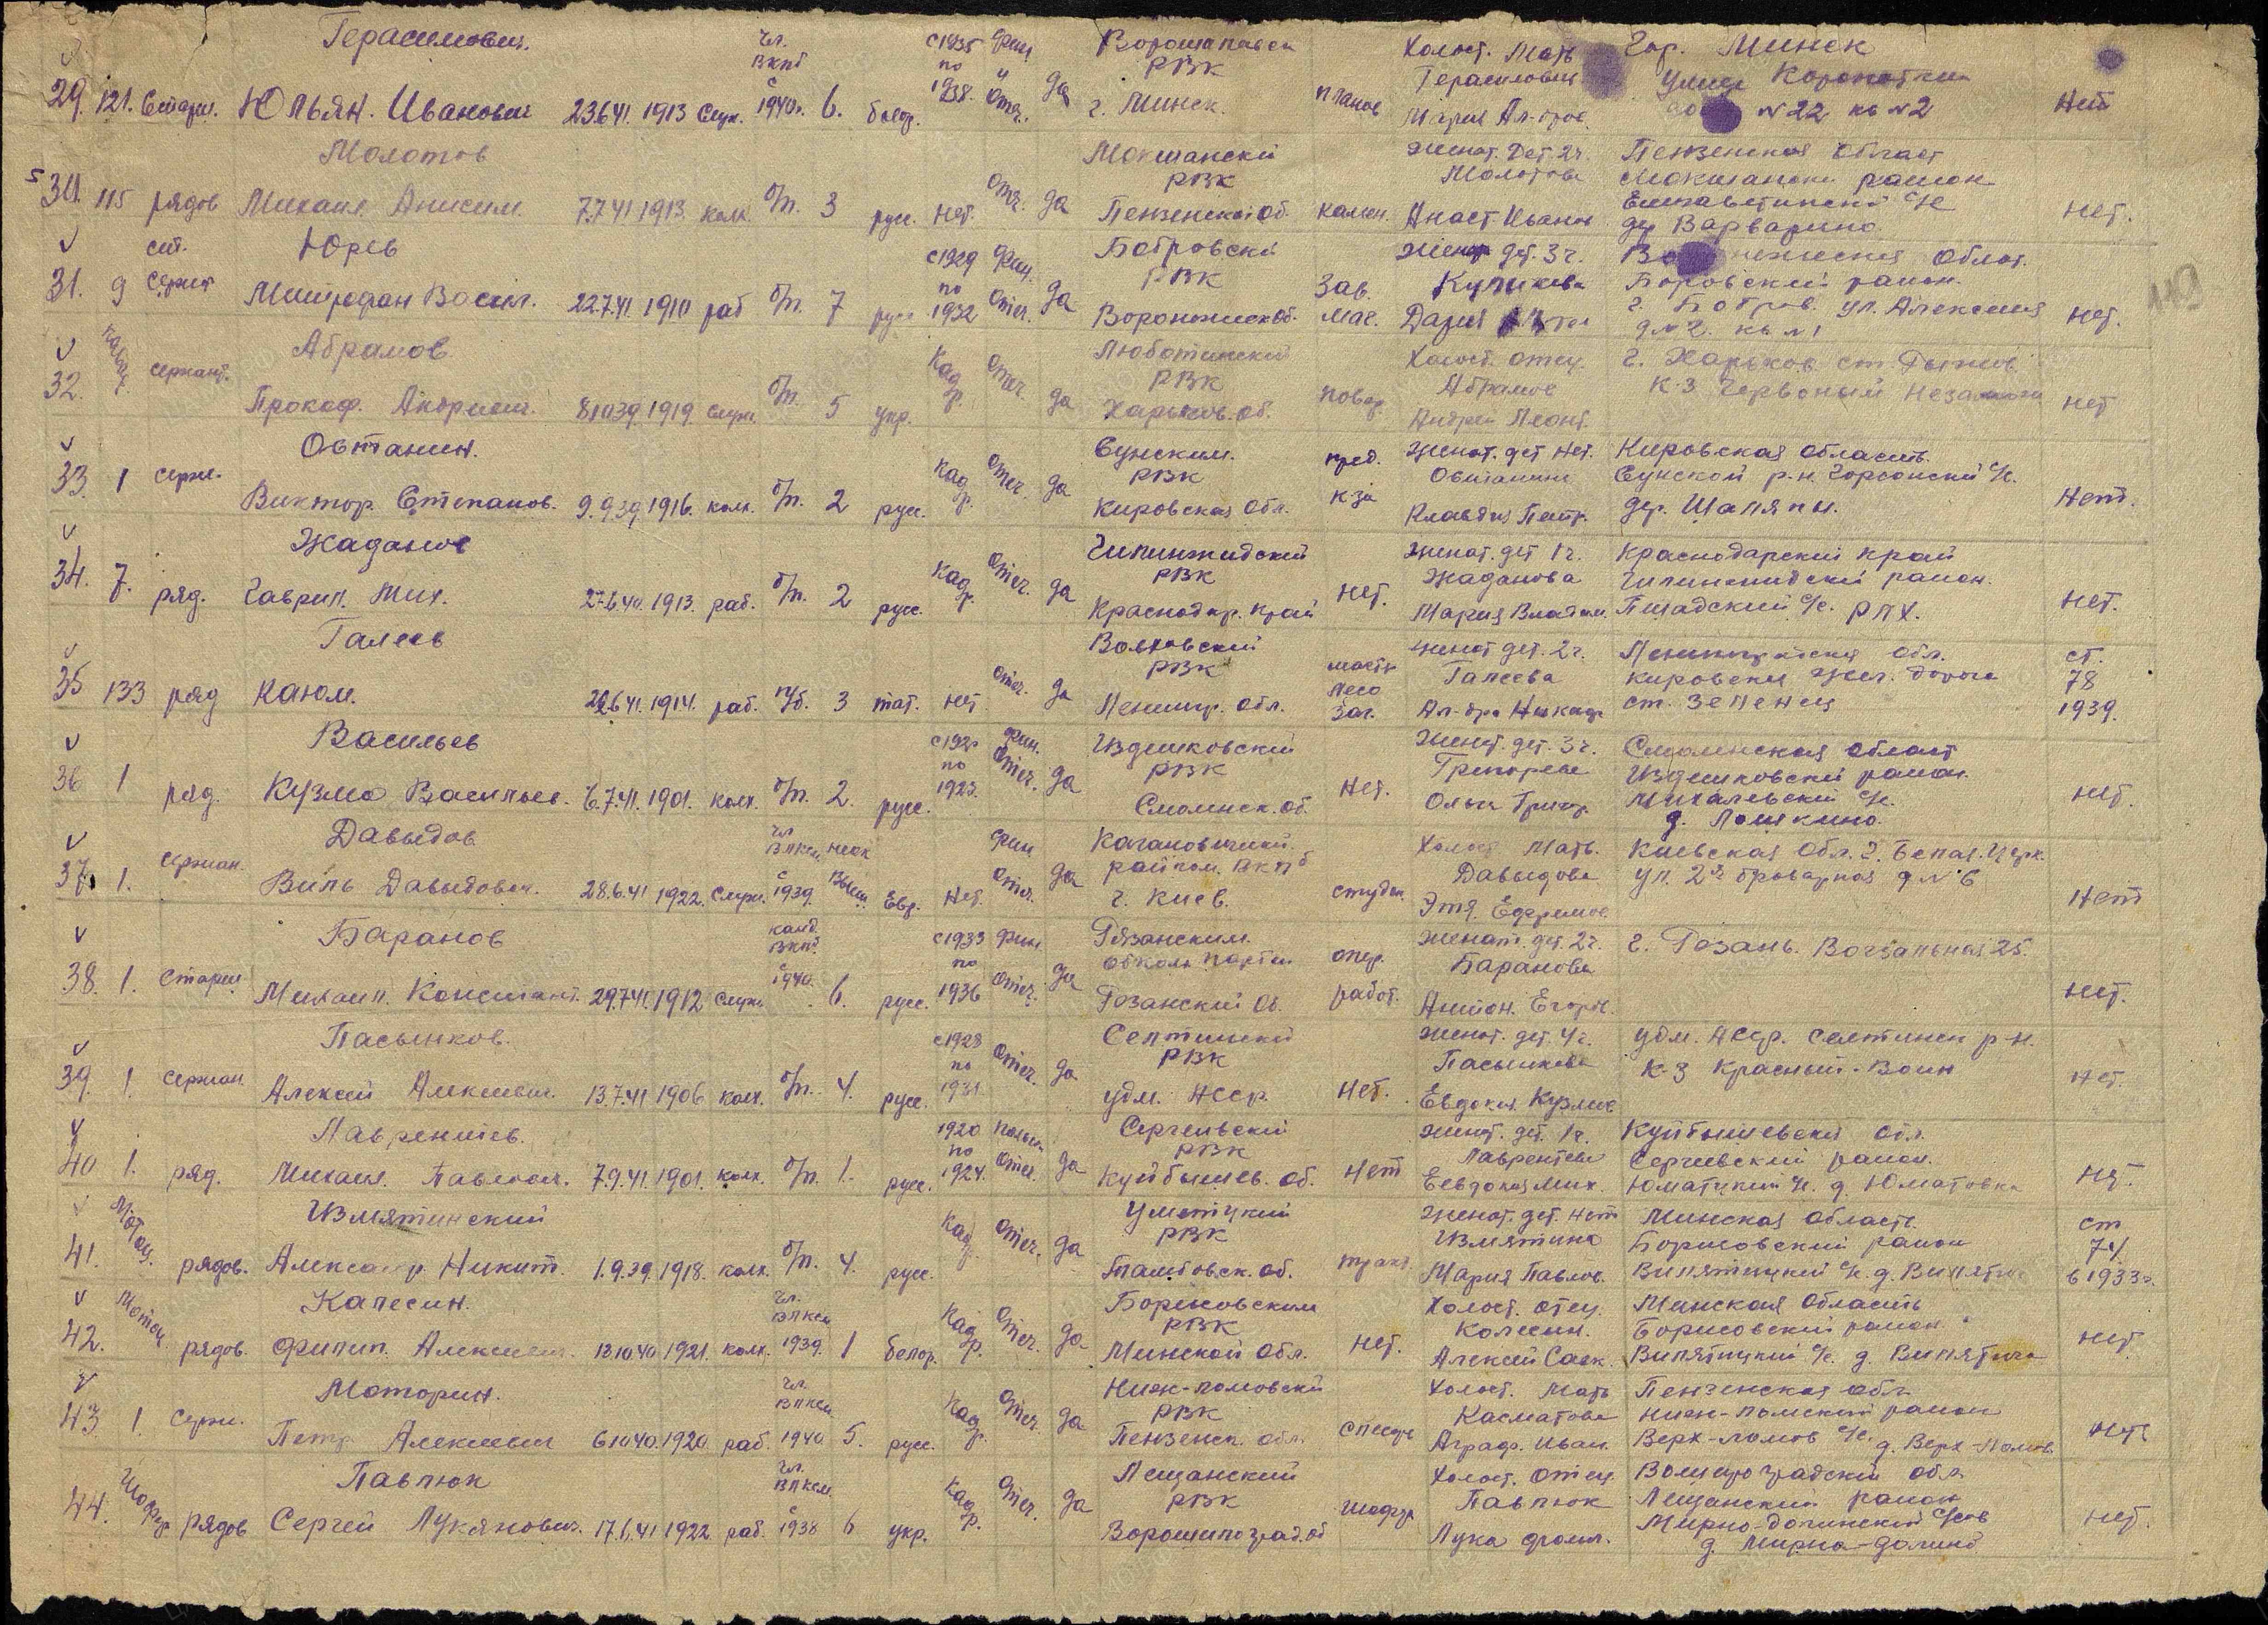 Герасимович. чл. ВКПб с 1935 фин Ворошиловск Холост. Мать Гор. Минск
29. 121. Старш. Юльян. Иванович 23.6.41. 1913 Служ. с 1940г. 6. белор. по 1938. и Отеч. да РВК г. Минск. планов Герасимович Мария Ал-дров. улица №22 кв №2 Нет
Молотов Мокшански Женат. Дет. 2ч. Пензенская Област
30. 115 рядов Михаил Анисим. 7.7.41. 1913. колх. б/п. 3 русс. нет. Отеч. да РВК Пензенской об. камен. Молотова Анаст Иванов Мокшански район Елизаветински с/с дер Варварино нет.
ст. Юрев с 1929 фин. Бобровски Женат дет. 3ч. Област.
31. 9 Сержт Митрофан Васил. 22.7.41. 1910 раб б/п. 7 русс по 1932 Отеч. да РВК Воронежской об. Зав. маг. Куликова Дарья Боровский район. г. Бобров. ул. Алексеева д№2. кв №1 нет.
Абрамов Люботинский Холост. отец. г. Харьков ст.
32. сержант. Прокоф. Андреевич. 8.10.39. 1919. Служ. б/п. 5 укр. Кадр. Отеч. да РВК Харьков. об. повар Абрамов Андрей Леонт. К-З Червоный нет
Овтанин. Сунским. Женат. дет Нет. Кировская Область.
33. 1 серж. Виктор. Степанов. 9.9.39. 1916. колх. б/п. 2 русс. Кадр. Отеч. да РВК Кировская обл. пред. к-за Овтанина Клавдия Петр. Сунской р.н. с/с. дер. Шаляпы. Нет.
Жаданов Гилинжидский женат. дет 1ч. Краснодарский край
34. 7. ряд. Гаврил. Мих. 27.6.40. 1913. раб. б/п. 2 русс. Кадр. Отеч. да РВК Краснодар. край нет. Жаданова Мария Владим. Гилинжидский район. Пшадский с/с. РПХ. нет.
Галеев Волховский женат дет. 2ч. обл. ст.
35 133 ряд Каюм. 1914. раб. 3 тат. нет Отеч. да РВК Ленингр. обл. мастер лесо заг. Галеева Ал-дра Никандр Кировская жел. дорога ст. Зеленец 78 1939.
Васильев фин. Издешковский Женат. дет. 3ч. Смоленская область
36 1 ряд. Кузма Васильев. 6.7.41. 1901. колх. б/п. 2. русс. по 1923. Отеч. да РВК Смоленск. об. Нет. Григорева Ольга Григор. Издешковский район. Михалевский с/с. д. Ломакино. нет.
Давыдов чл. ВЛКСМ фин Кагановичский. Холост Мать. Киевская Обл. г. Белая. Церк.
37. 1. Сержан. Виль Давыдович. 28.6.41 1922. Служ. с 1939. Высш. Евр. Нет. Отеч. да райком. ВКПб г. Киев. студен. Давыдова Этя. Ефремов. ул. 2я броварная д№6 Нет
Баранов канд. ВКПб с 1933 фин. Рязанским. Женат. дет. 2ч. г. Рязань. Вокзальная 25.
38. 1. Старш. Михаил. Констант. 29.7.41. 1912 служ. с 1940. 6. русс. по 1936 Отеч. да обком партии Рязанский об. опер. работ. Баранова Антон. Егоров. нет.
Пасынков. с 1928 Селтински женат. дет. 4ч. Удм. АССР. Селтинск р-н.
39. 1. Сержан. Алексей Алексеевич. 13.7.41 1906 колх. б/п. 4. русс. по 1931. Отеч. да РВК удм. АССР. Нет. Пасынкова Евдокия Кузмов. К-З Красный-Воин нет.
Лаврентев. 1920 польск Сергиевский женат. дет. 1ч. Куйбышевский обл.
40 1. ряд. Михаил. Павлович. 7.9.41. 1901. колх. б/п. 1. русс. по 1924. Отеч. да РВК Куйбышев. об. Нет Лаврентева Евдокия Мих. Сергиевский район. с/с. д. Юматовка Нет.
Измятинский Уметцкий женат. дет. Нет Минская область. ст
41. рядов. Александр Никит. 1.9.39. 1918. колх. б/п. 4. русс. Кадр. Отеч. да РВК Тамбовск. об. тракт. Измятина Мария Павлов. Борисовский район с/с. д. 74 в 1933г.
Калесин. чл. ВЛКСМ Борисовским Холост. отец. Минская Область
42. рядов. Филип. Алексеевич. 13.10.40. 1921. колх. 1939. 1 белор. Кадр. Отеч. да РВК Минской обл. нет. Колесин. Алексей Савк. Борисовский район. с/с. д. нет
Моторин. чл. ВЛКСМ Ниж-Ломовски Холост. Мать Пензенская обл.
43. 1. Серж. Петр Алексеевич 6.10.40. 1920. раб. 1940 5. русс. Кадр. Отеч. да РВК Пензенск. обл. слесарь Касматова Аграф. Иван. Ниж-Ломский район Верх-Ломов с/с. д. Верх-Ломов. нет
Павлюк чл. ВЛКСМ Лещанский Холост. Отец. обл.
44. Шофер рядов Сергей Лукянович. 17.6.41 1922 раб. с 1938 6 укр. Кадр. Отеч. да РВК Ворошилоград. об шофер Павлюк Лука Лещанский район Мирно-долинский с/сов д. Мирно-долино нет.